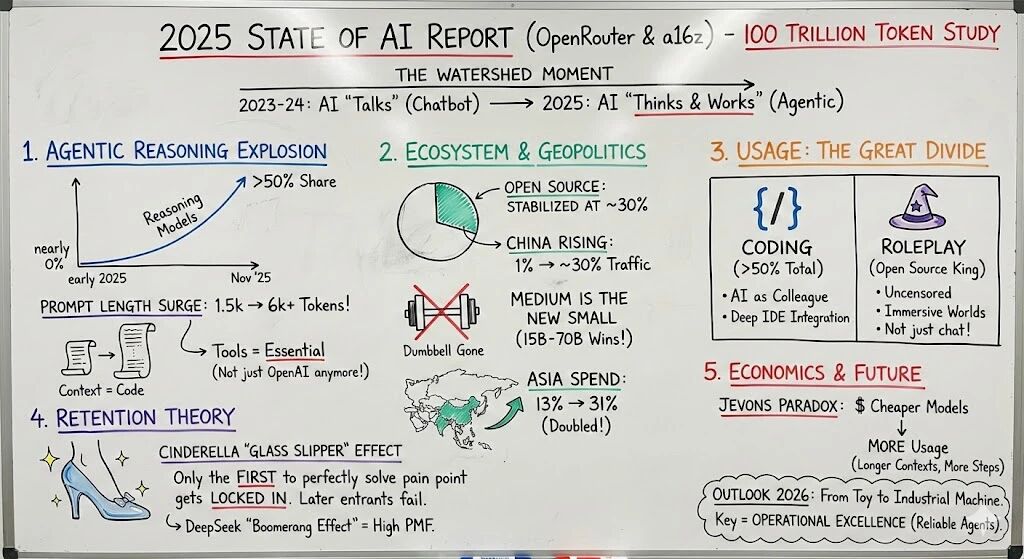 2025 STATE OF AI REPORT (OpenRouter & a16z) – 100 TRILLION TOKEN STUDY
THE WATERSHED MOMENT
2023-24: AI "Talks" (Chatbot) → 2025: AI "Thinks & Works" (Agentic)
1. AGENTIC REASONING EXPLOSION
>50% Share
Reasoning
Models
nearly
0%
early 2025
Nov '25
PROMPT LENGTH SURGE: 1.5k → 6k+ Tokens!
Tools = Essential
(Not just OpenAI anymore!)
Context = Code
2. ECOSYSTEM & GEOPOLITICS
OPEN SOURCE:
STABILIZED AT ~30%
CHINA RISING:
1% → ~30% Traffic
Dumbbell Gone
MEDIUM IS THE
NEW SMALL
(15B-70B Wins!)
ASIA SPEND:
13% → 31%
(Doubled!)
3. USAGE: THE GREAT DIVIDE
{/}
CODING
(>50% Total)
• AI as Colleague
• Deep IDE Integration
ROLEPLAY
(Open Source King)
• Uncensored
• Immersive Worlds
• Not just chat!
4. RETENTION THEORY
CINDERELLA "GLASS SLIPPER" EFFECT
Only the FIRST to perfectly solve pain point
gets LOCKED IN. Later entrants fail.
↳ DeepSeek "Boomerang Effect" = High PMF.
5. ECONOMICS & FUTURE
JEVONS PARADOX: $ Cheaper Models
↓
MORE Usage
(Longer Contexts, More Steps)
OUTLOOK 2026: From Toy to Industrial Machine.
Key = OPERATIONAL EXCELLENCE (Reliable Agents).